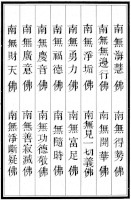 南無海慧佛　南無得勢佛
南無無邊行佛　南無開華佛
南無淨垢佛　南無見一切義佛
南無勇力佛　南無富足佛
南無福德佛　南無隨時佛
南無慶音佛　南無功德敬佛
南無廣意佛　南無善寂滅佛
南無財天佛　南無淨斷疑佛